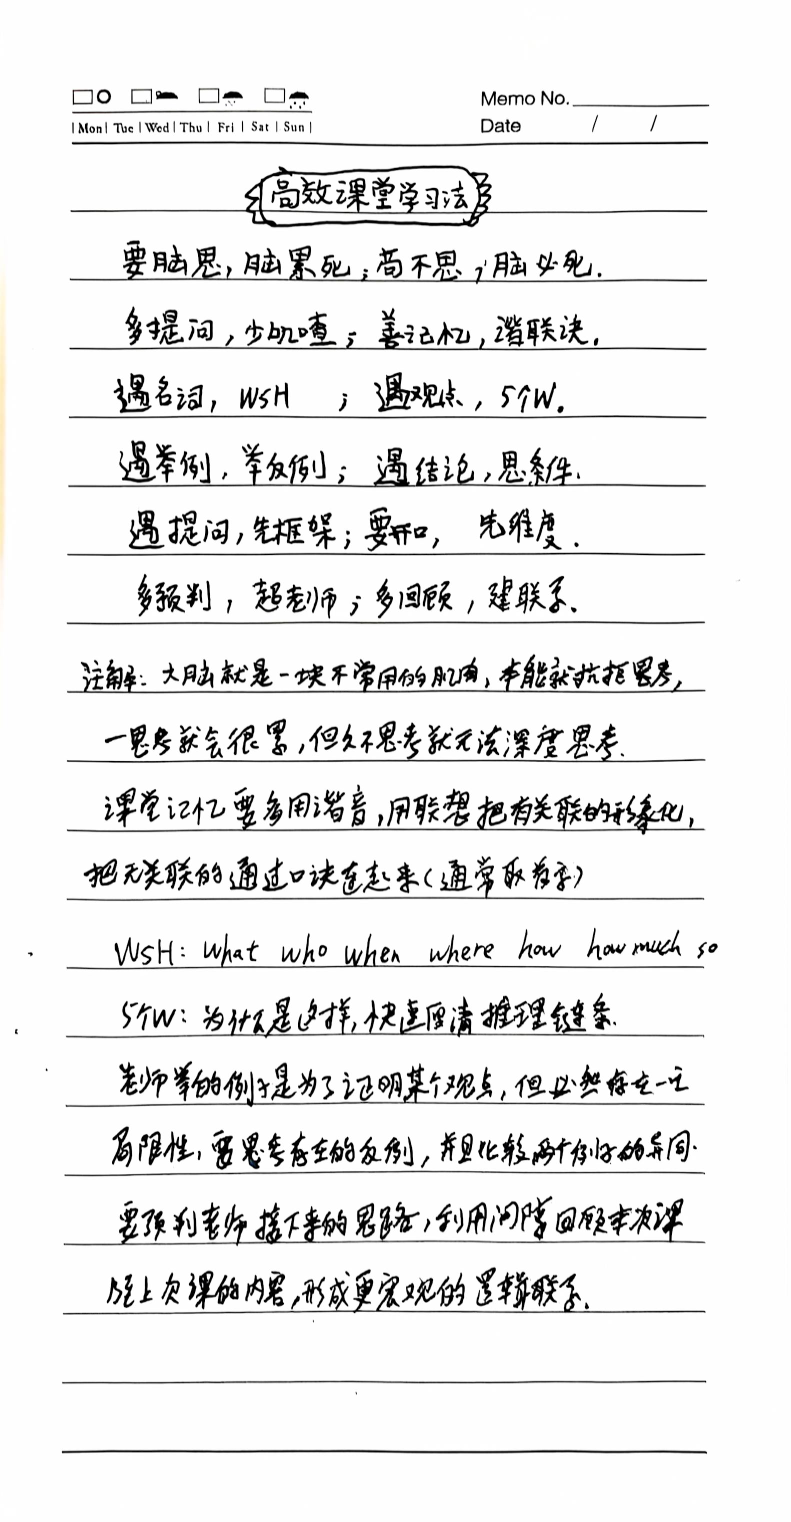 Memo No.
Mon Tue Wed Thu Fri Sat Sun
Date / /
高效课堂学习法
要脑思，脑累死；苟不思，脑必死.
多提问，少叽喳；善记忆，谐联诀.
遇名词，W5H ；遇观点，5个W.
遇举例，举反例；遇结论，思条件.
遇提问，先框架；要开口， 先维度.
多预判，超老师；多回顾，建联系.
注解：大脑就是一块不常用的肌肉，本能就抗拒思考，
一思考就会很累，但久不思考就无法深度思考.
课堂记忆要多用谐音，用联想把有关联的形象化，
把无关联的通过口诀连起来（通常取首字）
W5H: what who when where how how much so
5个W：为什么是这样，快速厘清推理链条.
老师举的例子是为了证明某个观点，但必然存在一定
局限性，要思考存在的反例，并且比较两个例子的异同.
要预判老师接下来的思路，利用间隙回顾本次课
上次课的内容，形成更宏观的逻辑联系.